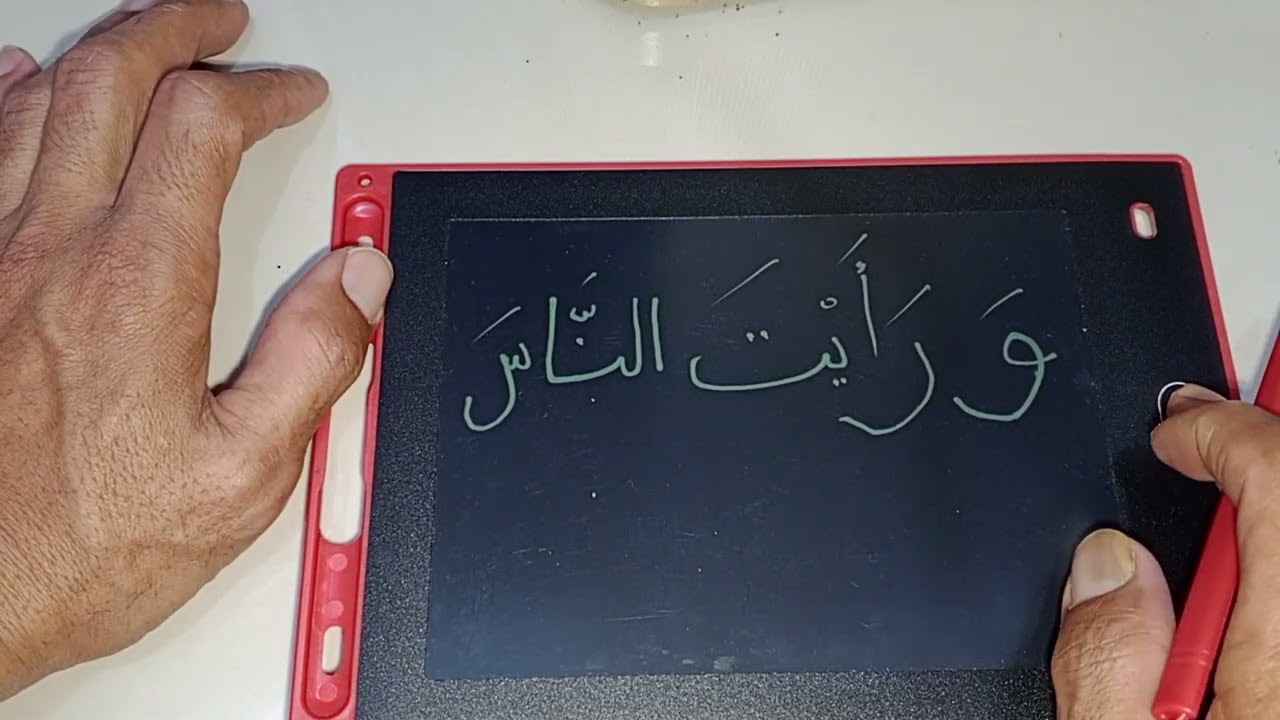 وَ رَأَيْتَ النَّاسَ